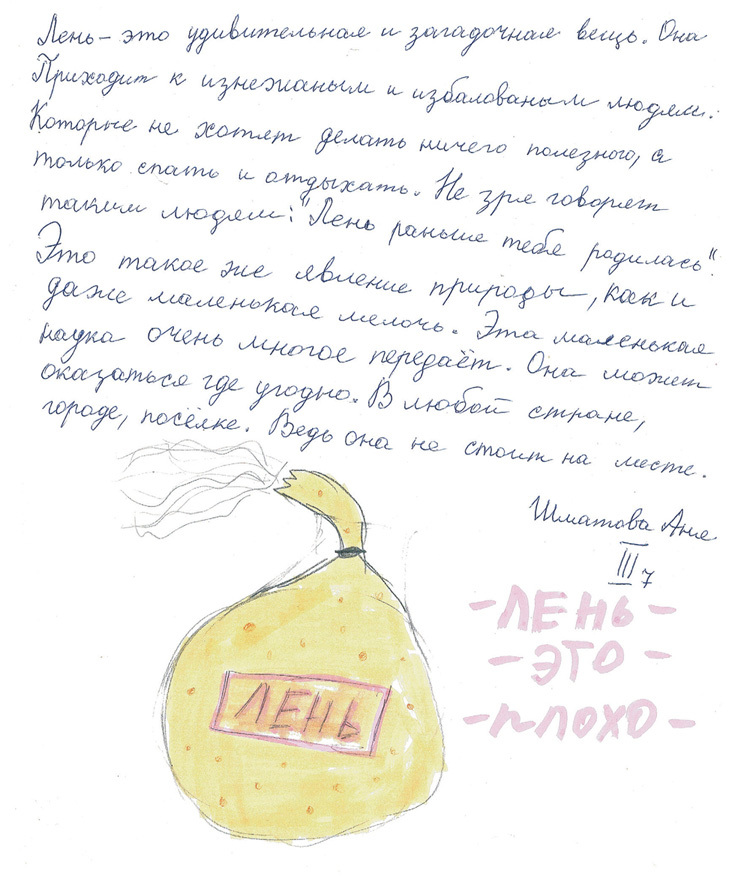 Лень – это удивительная и загадочная вещь. Она
Приходит к изнежаным и избалованым людям.
Которые не хотят делать ничего полезного, а
только спать и отдыхать. Не зря говорят
таким людям: "Лень раньше тебя родилась".
Это такое же явление природы, как и
даже маленькая мелочь. Эта маленькая
наука очень многое передаёт. Она может
оказаться где угодно. В любой стране,
городе, посёлке. Ведь она не стоит на месте.
Шматова Аня
III 7
- ЛЕНЬ -
- ЭТО -
- ПЛОХО -
ЛЕНЬ